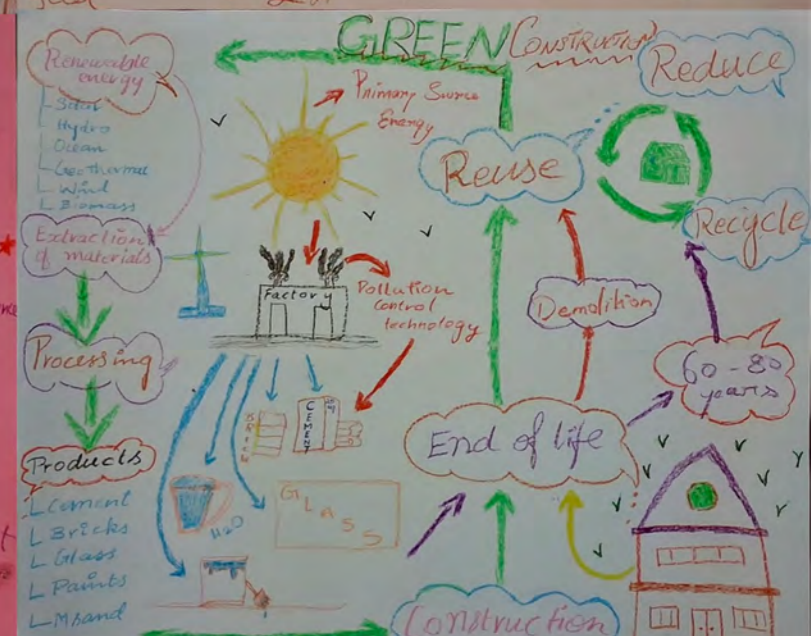 GREEN CONSTRUCTION
Renewable
energy
Solar
Hydro
Ocean
Geothermal
Wind
Biomass
Primary Source
Energy
Reduce
Reuse
Recycle
Extraction
of materials
Factory
Pollution
Control
technology
Demolition
Processing
60-80
years
BRICK
CEMENT
End of life
Products
Cement
Bricks
Glass
Paints
Msand
H2O
GLASS
Construction